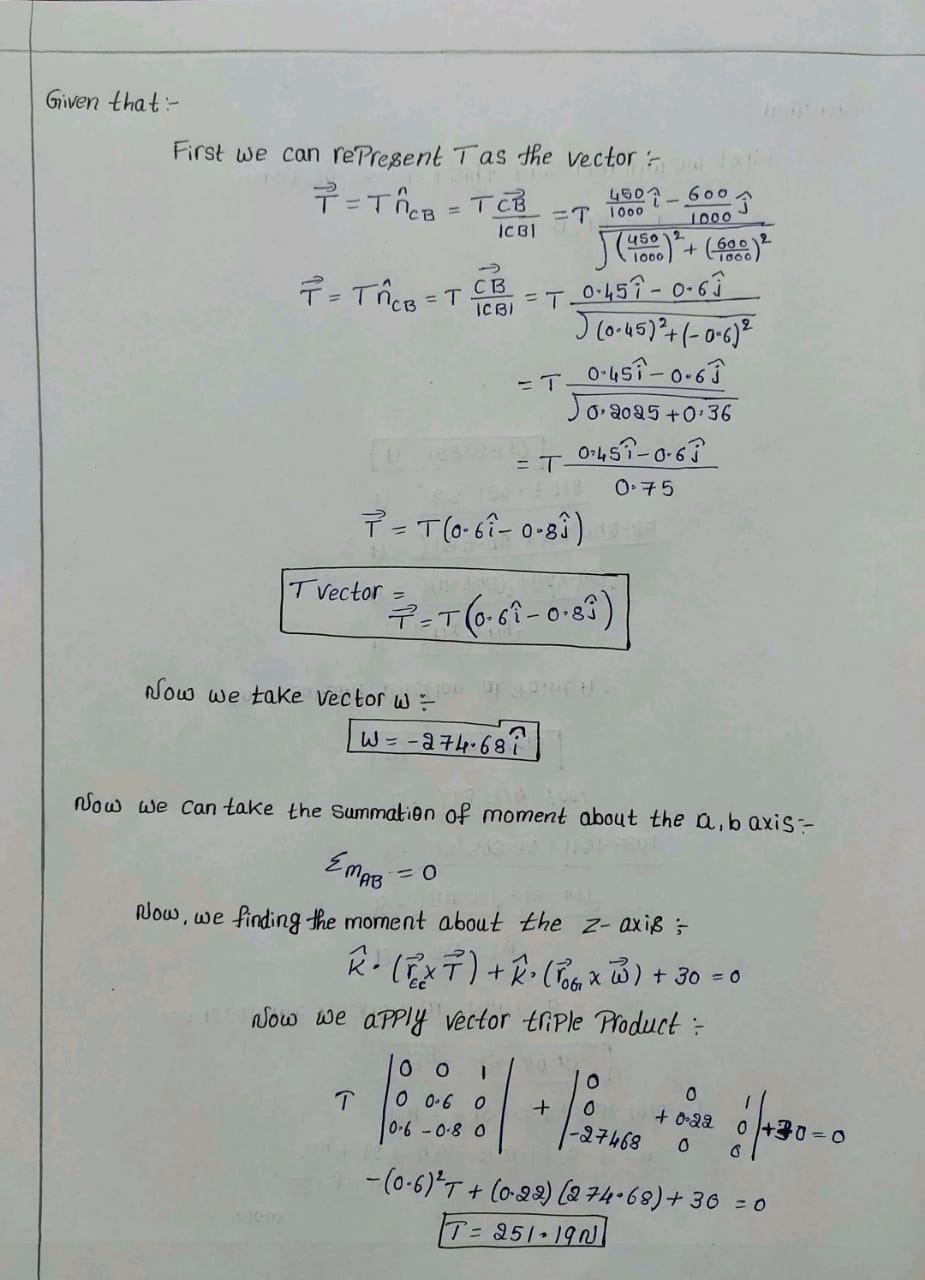 Given that :-
First we can rePresent T as the vector :-
T⃗ = T n̂CB = T CB⃗/|CB| = T (450/1000 î - 600/1000 ĵ)/√((450/1000)² + (600/1000)²)
T⃗ = T n̂CB = T CB⃗/|CB| = T (0.45î - 0.6ĵ)/√((0.45)² + (-0.6)²)
= T (0.45î - 0.6ĵ)/√(0.2025 + 0.36)
= T (0.45î - 0.6ĵ)/0.75
T⃗ = T(0.6î - 0.8ĵ)
T vector =
T⃗ = T(0.6î - 0.8ĵ)
Now we take vector w :-
W = -274.68 î
Now we can take the summation of moment about the a, b axis :-
ΣmAB = 0
Now, we finding the moment about the z-axis :-
k̂ · (r⃗EC × T⃗) + k̂ · (r⃗OG × w⃗) + 30 = 0
Now we aPPly vector triple Product :-
T |0 0 1| + |0 0 1| + 30 = 0
|0 0.6 0| |0 +0.22 0|
|0.6 -0.8 0| |-27468 0 0|
-(0.6)²T + (0.22) (274.68) + 30 = 0
T = 251.19N